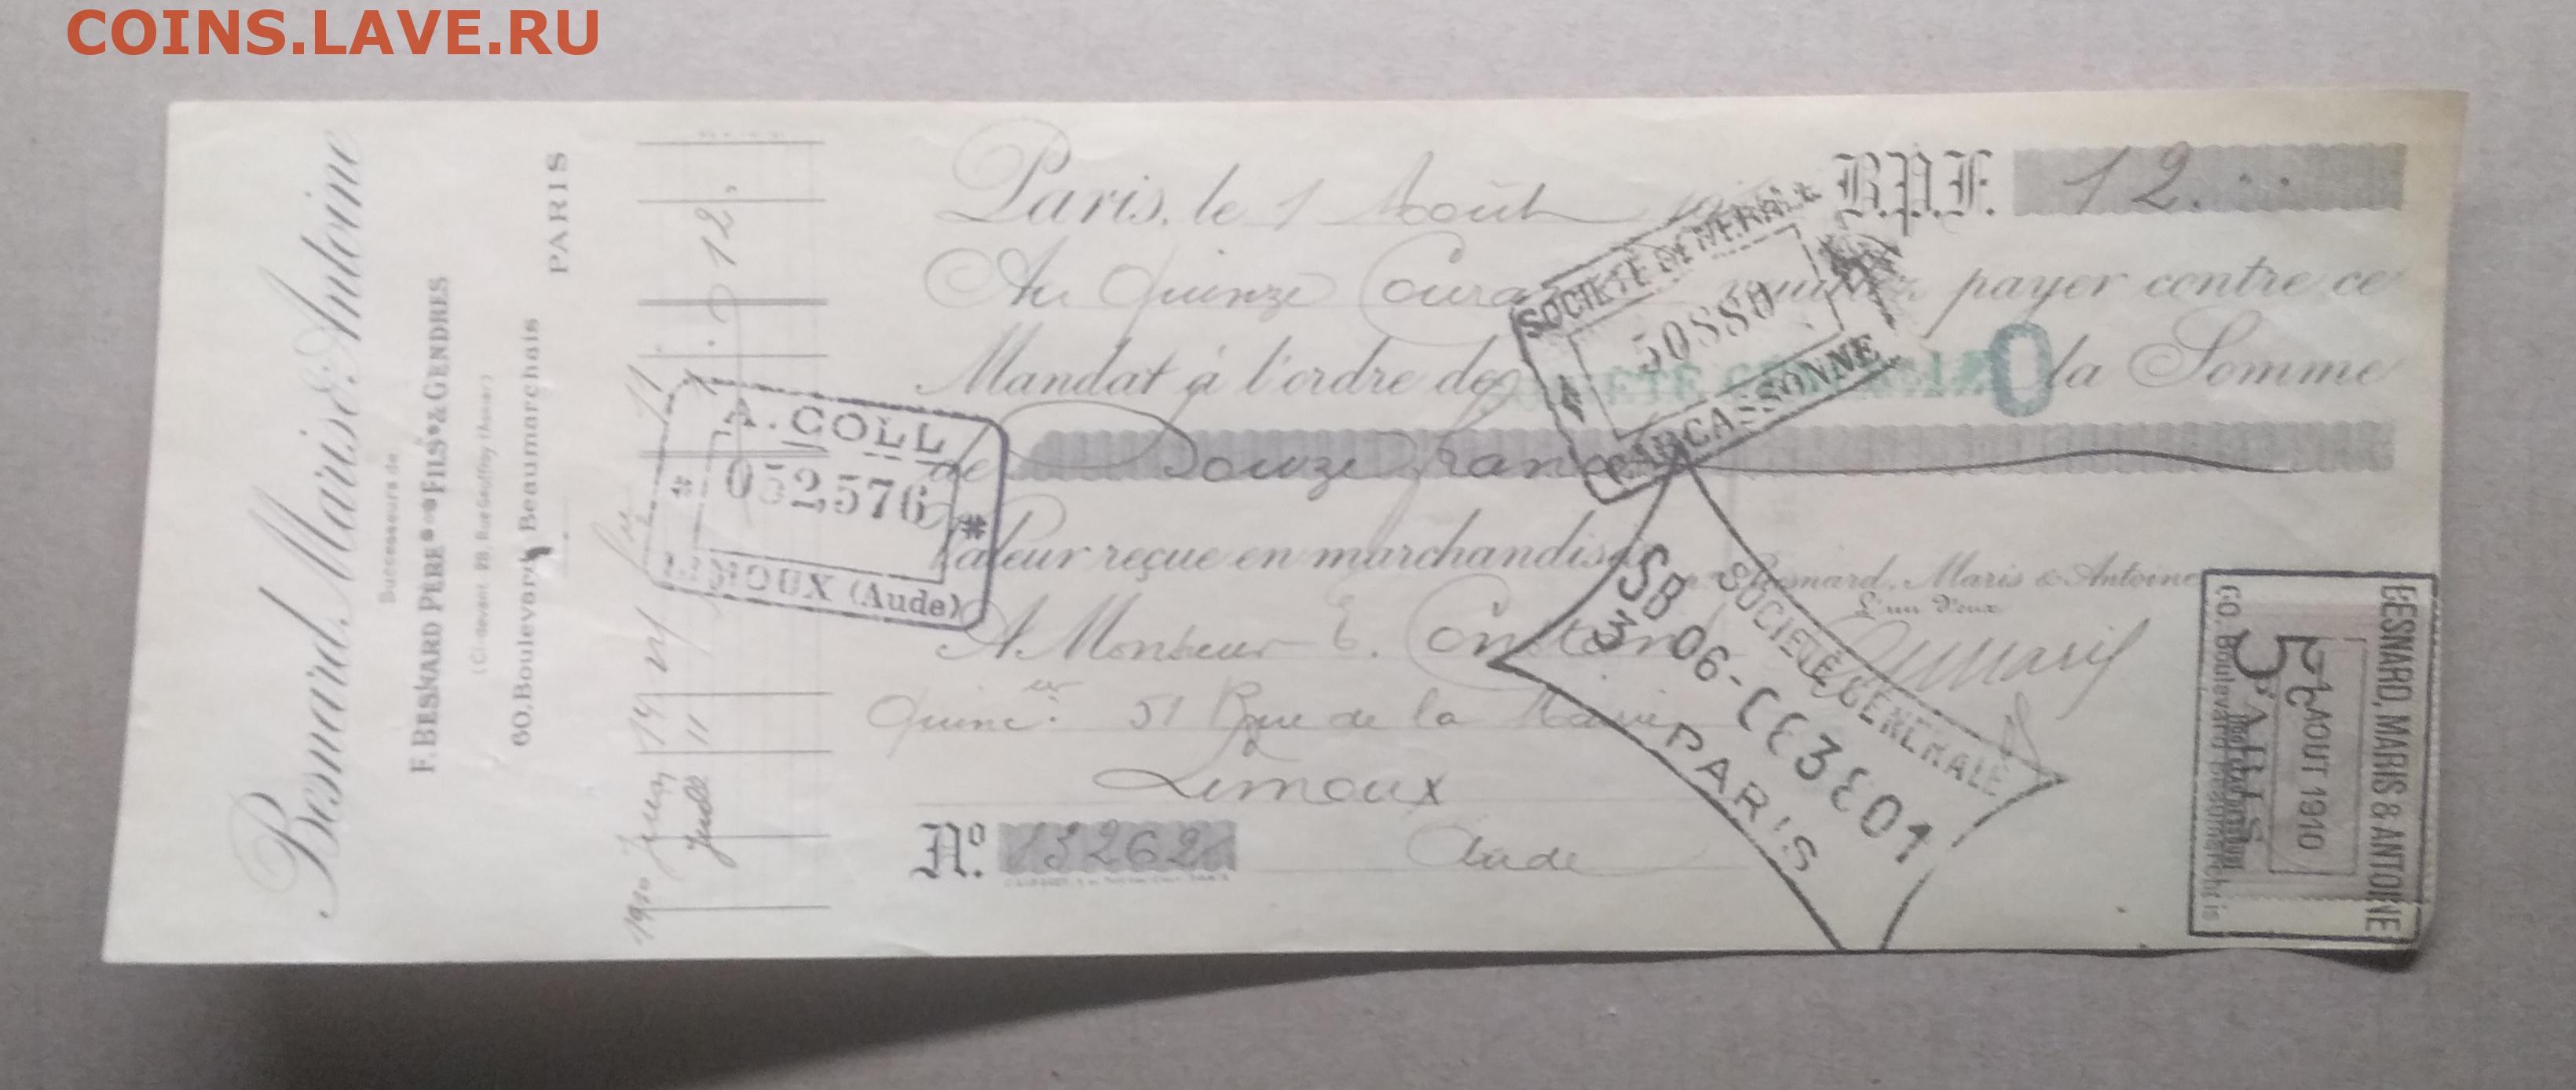 COINS.LAVE.RU
Besnard, Maris & Antoine
Successeurs de
F. BESNARD PÈRE FILS & GENDRES
(Ci-devant 28, Rue Geoffroy-Lasnier)
60, Boulevard Beaumarchais
PARIS
12,
Paris, le 1 Août
B.P.F. 12..
Au Quinze Courant payer contre ce
Mandat à l'ordre de la Somme
de Douze francs
Valeur reçue en marchandises
Besnard, Maris & Antoine
L'un d'eux
A Monsieur E.
Quinc.er 51 Rue de la
Limoux
Aude
No. 13262
A. COLL
052,576
LIMOUX (Aude)
SOCIÉTÉ GÉNÉRALE
50880
CARCASSONNE
SOCIÉTÉ GÉNÉRALE
SB 06-CE3E01
3
PARIS
BESNARD, MARIS & ANTOINE
1 AOUT 1910
5c
PARIS
60, Boulevard Beaumarchais